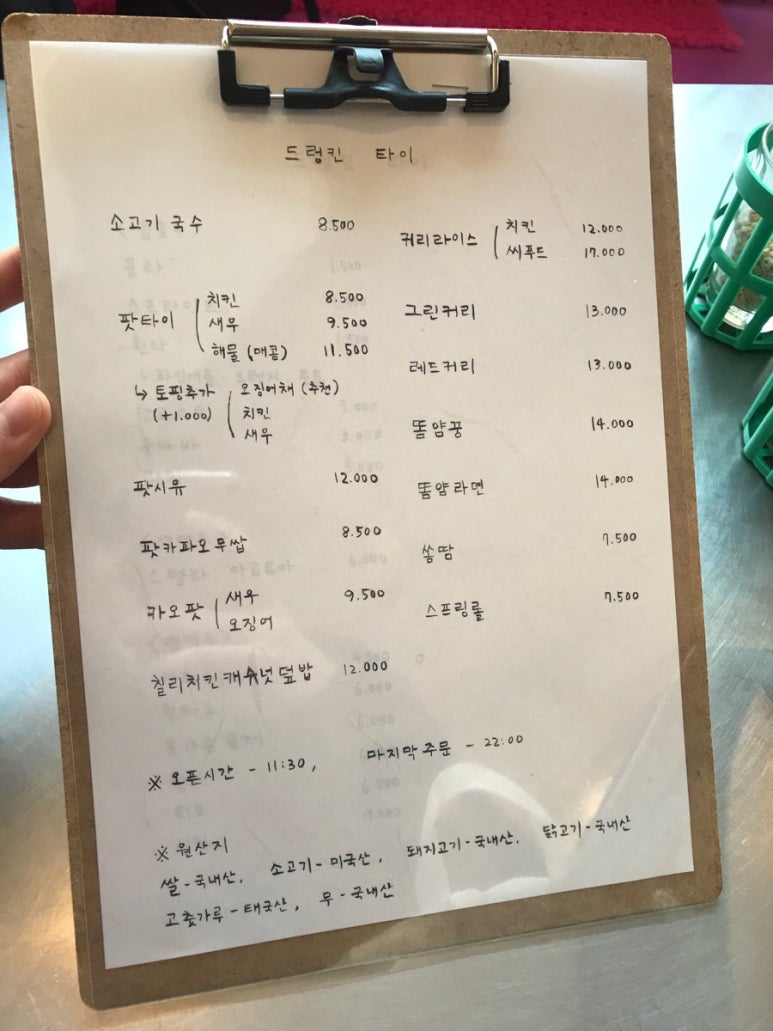 드렁킨 타이
소고기 국수 8.500
팟타이 치킨 8.500
새우 9.500
해물 (매콤) 11.500
↳ 토핑추가 오징어채 (추천)
(+1.000) 치킨
새우
팟시유 12.000
팟카파오무쌉 8.500
카오팟 새우 9.500
오징어
칠리치킨캐슈넛덮밥 12.000
커리라이스 치킨 12.000
씨푸드 17.000
그린커리 13.000
레드커리 13.000
똠얌꿍 14.000
똠얌라면 14.000
쏨땀 7.500
스프링롤 7.500
※ 오픈시간 - 11:30, 마지막 주문 - 22:00
※ 원산지
쌀-국내산, 소고기-미국산, 돼지고기-국내산, 닭고기-국내산
고춧가루-태국산, 무-국내산